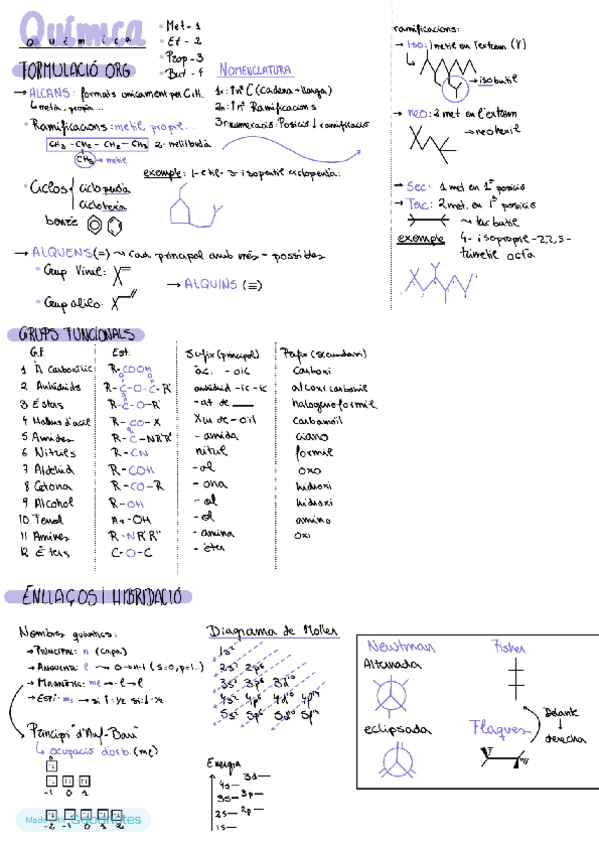 Química
QUÍMICA
• Met - 1
• Et - 2
• Prop - 3
• But - 4
FORMULACIÓ ORG
→ ALCANS: formats únicament per C i H.
↳ metà, propà...
• Ramificacions: metil, propil...
CH3 - CH2 - CH2 - CH3 2-metilbutà
CH3 → metil
• Ciclos
ciclopentà
ciclohexà
benzè
NOMENCLATURA
1r: nº C (Cadena + llarga)
2n: nº Ramificacions
3r: numeració: Posició ↓ ramificació
exemple: 1-etil-3-isopentil ciclopentà:
→ ALQUENS (=) → Cad. principal amb més = possibles
• Grup Vinil:
• Grup alilo:
→ ALQUINS (≡)
ramificacions:
→ iso: 1 metil en l'extrem (Y)
→ isobutil
→ neo: 2 met en l'extrem
→ neohexil
→ Sec: 1 met en 1ª posició
→ Terc: 2 met. en 1ª posició
→ tercbutil
exemple 4-isopropil-2,2,5-
trimetil octà
GRUPS FUNCIONALS
G.F. Est. Sufix (principal) Prefix (secundari)
1 À Carboxílic R-COOH àc. - oic Carboxi
2 Anhídrids R-C-O-C-R' anhídrid -ic -ic alcoxicarbonil
3 Èsters R-C-O-R' -at de ___ halogenoformil
4 Halurs d'àcil R-CO-X Xur de -oïl Carbamoïl
5 Amides R-C-NR'R'' -amida ciano
6 Nitrils R-CN nitril formil
7 Aldehid R-COH -al oxo
8 Cetona R-CO-R -ona hidroxi
9 Alcohol R-OH -ol hidroxi
10 Fenol Ar-OH -ol amino
11 Amines R-NR'R'' -amina oxi
12 Èters C-O-C -èter
ENLLAÇOS I HIBRIDACIÓ
Nombres quàntics:
→ PRINCIPAL: n (capa)
→ ANGULAR: l → 0→n-1 (s=0, p=1..)
→ MAGNÈTIC: ml → -l→l
→ ESPÍ: ms → si ↑ 1/2 si ↓ -1/2
Principi "d'Auf-Bau"
↳ ocupació d'orb. (ml)
-1 0 1
-2 -1 0 1 2
Diagrama de Moller
1s²
2s² 2p⁶
3s² 3p⁶ 3d¹⁰
4s² 4p⁶ 4d¹⁰ 4f¹⁴
5s² 5p⁶ 5d¹⁰ 5f¹⁴
Energia
3d
4s
3s 3p
2s 2p
1s
Newman
Alternada
eclipsada
Fisher
Delante
→ derecha
Flaques
Made with Goodnotes